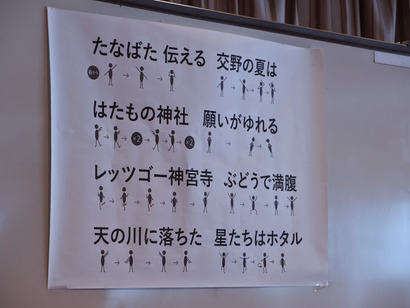 たなばた 伝える 交野の夏は
はたもの神社 願いがゆれる
×2 ×2
レッツゴー神宮寺 ぶどうで満腹
天の川に落ちた 星たちはホタル